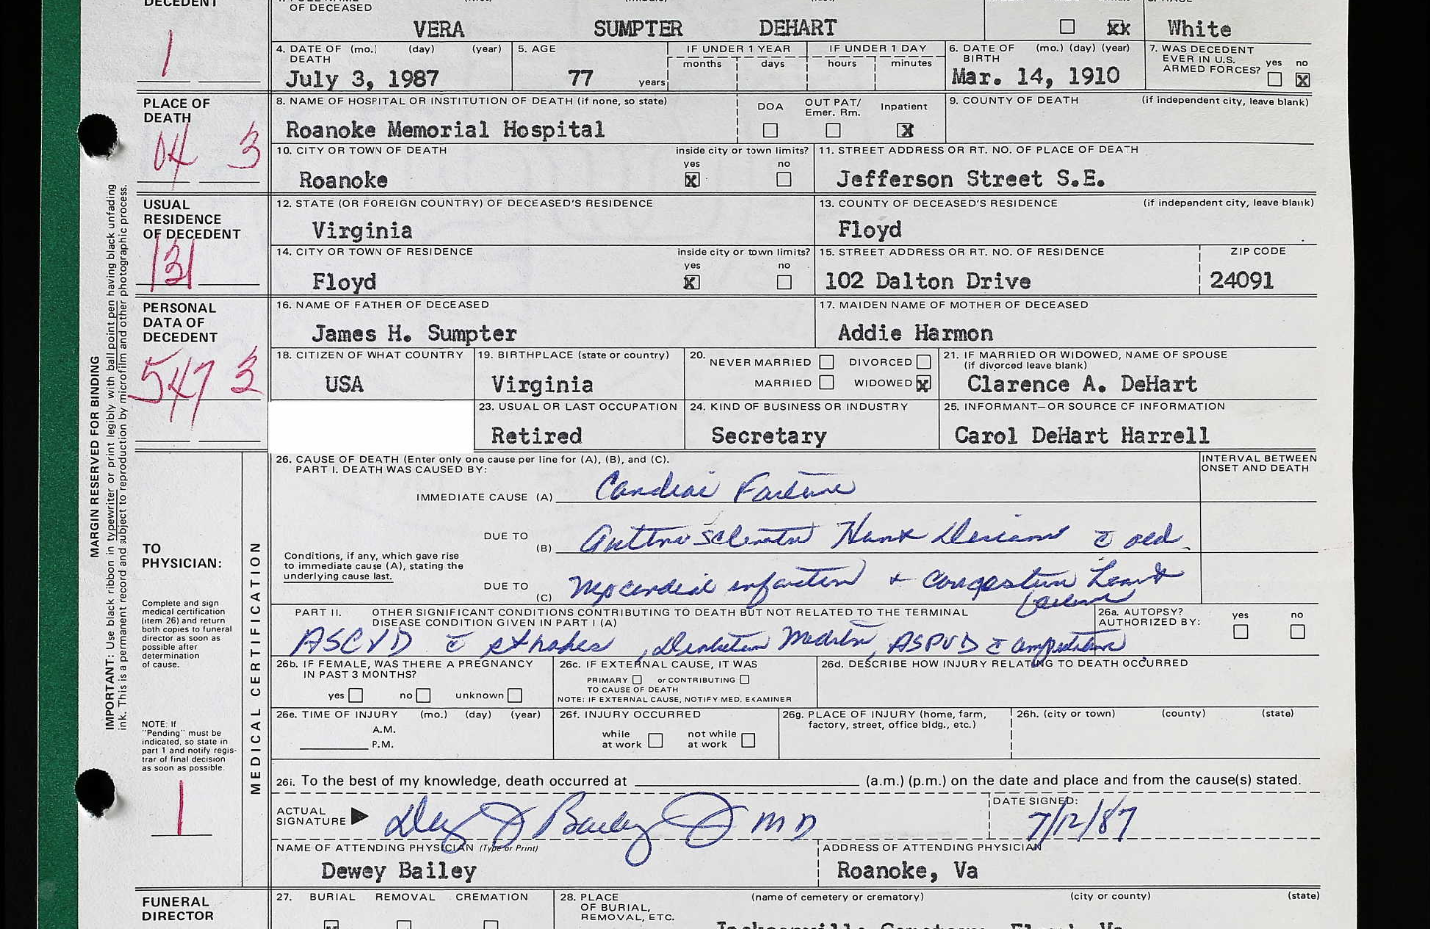 DECEDENT
OF DECEASED
VERA SUMPTER DEHART
xx White
1
4. DATE OF (mo.) (day) (year) DEATH
July 3, 1987
5. AGE
77 years
IF UNDER 1 YEAR
months days
IF UNDER 1 DAY
hours minutes
6. DATE OF (mo.) (day) (year) BIRTH
Mar. 14, 1910
7. WAS DECEDENT
EVER IN U.S.
ARMED FORCES? yes no
X
PLACE OF
DEATH
04 3
8. NAME OF HOSPITAL OR INSTITUTION OF DEATH (if none, so state)
Roanoke Memorial Hospital
DOA OUT PAT/ Emer. Rm. Inpatient
X
9. COUNTY OF DEATH (if independent city, leave blank)
10. CITY OR TOWN OF DEATH inside city or town limits?
yes no
Roanoke X
11. STREET ADDRESS OR RT. NO. OF PLACE OF DEATH
Jefferson Street S.E.
USUAL
RESIDENCE
OF DECEDENT
131
12. STATE (OR FOREIGN COUNTRY) OF DECEASED'S RESIDENCE
Virginia
13. COUNTY OF DECEASED'S RESIDENCE (if independent city, leave blank)
Floyd
14. CITY OR TOWN OF RESIDENCE inside city or town limits?
yes no
Floyd X
15. STREET ADDRESS OR RT. NO. OF RESIDENCE ZIP CODE
102 Dalton Drive 24091
PERSONAL
DATA OF
DECEDENT
547 3
16. NAME OF FATHER OF DECEASED
James H. Sumpter
17. MAIDEN NAME OF MOTHER OF DECEASED
Addie Harmon
18. CITIZEN OF WHAT COUNTRY
USA
19. BIRTHPLACE (state or country)
Virginia
20.
NEVER MARRIED DIVORCED
MARRIED WIDOWED X
21. IF MARRIED OR WIDOWED, NAME OF SPOUSE
(if divorced leave blank)
Clarence A. DeHart
23. USUAL OR LAST OCCUPATION
Retired
24. KIND OF BUSINESS OR INDUSTRY
Secretary
25. INFORMANT—OR SOURCE OF INFORMATION
Carol DeHart Harrell
MARGIN RESERVED FOR BINDING
IMPORTANT: Use black ribbon in typewriter or print legibly with ball point pen having black unfading
ink. This is a permanent record and subject to reproduction by microfilm and other photographic process.
TO
PHYSICIAN:
Complete and sign
medical certification
(item 26) and return
both copies to funeral
director as soon as
possible after
determination
of cause.
NOTE: If
"Pending" must be
indicated, so state in
part 1 and notify regis-
trar of final decision
as soon as possible.
1
MEDICAL CERTIFICATION
26. CAUSE OF DEATH (Enter only one cause per line for (A), (B), and (C).
PART I. DEATH WAS CAUSED BY:
INTERVAL BETWEEN
ONSET AND DEATH
IMMEDIATE CAUSE (A) Cardiac Failure
DUE TO
(B) Heart Disease c̄ old
Conditions, if any, which gave rise
to immediate cause (A), stating the
underlying cause last.
DUE TO
(C) myocardial infarction + Congestive heart failure
PART II. OTHER SIGNIFICANT CONDITIONS CONTRIBUTING TO DEATH BUT NOT RELATED TO THE TERMINAL
DISEASE CONDITION GIVEN IN PART I (A)
ASCVD c̄ strokes, Diabetes Mellitus, ASPVD c̄ amputation
26a. AUTOPSY?
AUTHORIZED BY: yes no
26b. IF FEMALE, WAS THERE A PREGNANCY
IN PAST 3 MONTHS?
yes no unknown
26c. IF EXTERNAL CAUSE, IT WAS
PRIMARY or CONTRIBUTING
TO CAUSE OF DEATH
NOTE: IF EXTERNAL CAUSE, NOTIFY MED. EXAMINER
26d. DESCRIBE HOW INJURY RELATING TO DEATH OCCURRED
26e. TIME OF INJURY (mo.) (day) (year)
A.M.
P.M.
26f. INJURY OCCURRED
while at work not while at work
26g. PLACE OF INJURY (home, farm,
factory, street, office bldg., etc.)
26h. (city or town) (county) (state)
26i. To the best of my knowledge, death occurred at (a.m.) (p.m.) on the date and place and from the cause(s) stated.
ACTUAL
SIGNATURE Dewey Bailey MD
DATE SIGNED:
7/12/87
NAME OF ATTENDING PHYSICIAN (Type or Print)
Dewey Bailey
ADDRESS OF ATTENDING PHYSICIAN
Roanoke, Va
FUNERAL
DIRECTOR
27. BURIAL REMOVAL CREMATION
28. PLACE
OF BURIAL,
REMOVAL, ETC.
(name of cemetery or crematory) (city or county) (state)